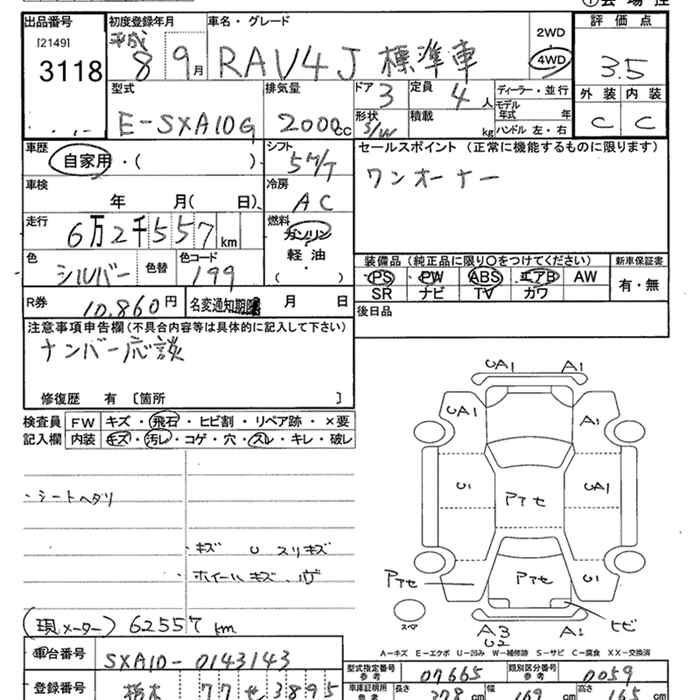 出品番号
[2149]
3118
初度登録年月
平成
8 9月
車名・グレード
RAV4 J 標準車
2WD
・
4WD
評価点
3.5
外装 内装
C C
型式
E-SXA10G
排気量
2000cc
ドア
3
形状
S/W
定員
4人
積載
kg
ディーラー・並行
モデル年式 年
ハンドル 左・右
車歴
自家用・( )
シフト
5M/T
セールスポイント (正常に機能するものに限ります)
ワンオーナー
車検
年 月( 日)
冷房
AC
走行
6万2千557km
燃料
ガソリン
軽油
( )
色
シルバー
色替
色コード
199
装備品 (純正品に限り○をつけてください)
新車保証書
PS PW ABS エアB AW
SR ナビ TV カワ
有・無
R券
10,860円
名変通知期限 月 日
後日品
注意事項申告欄(不具合内容等は具体的に記入して下さい)
ナンバー応談
修復歴 有 〔箇所 〕
検査員
記入欄
FW キズ・飛石・ヒビ割・リペア跡・×要
内装 キズ・汚レ・コゲ・穴・スレ・キレ・破レ
・シートヘタリ
・キズ U スリキズ
・ホイールキズ
(現メーター) 62557km
UA1 A1
UA1 A1
U1 アアセ UA1
アアセ アアセ U1
スペア
A3 A1
U2
ヒビ
A-キズ E-エクボ U-凹み W-補修跡 S-サビ C-腐食 XX-交換済
車台番号
SXA10-0143143
登録番号
栃木 77 せ 3895
型式指定番号
参考
07665
類別区分番号
参考
0059
車庫証明用
参考
長さ 378cm
幅 169cm
高さ 165cm